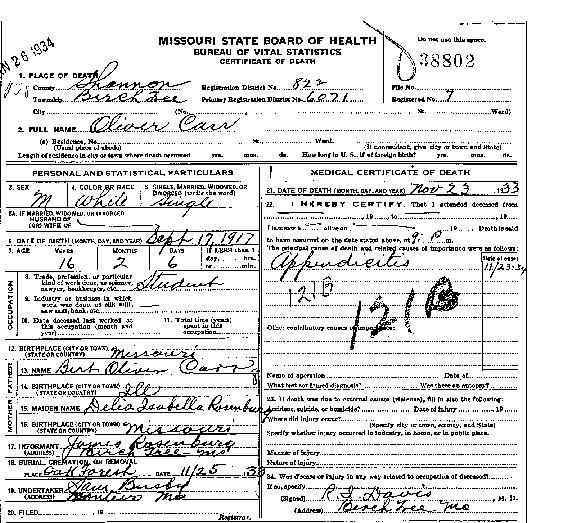 JAN 26 1934
MISSOURI STATE BOARD OF HEALTH
BUREAU OF VITAL STATISTICS
CERTIFICATE OF DEATH
Do not use this space.
38802
1. PLACE OF DEATH
County Shannon Registration District No. 822 File No.
Township Birch Tree Primary Registration District No. 6071 Registered No. 9
City (No. Ward)
2. FULL NAME Oliver Carr
(a) Residence, No. St. Ward.
(Usual place of abode) (If nonresident, give city or town and State)
Length of residence in city or town where death occurred yrs. mos. ds. How long in U. S., if of foreign birth? yrs. mos. ds.
PERSONAL AND STATISTICAL PARTICULARS
3. SEX 4. COLOR OR RACE 5. SINGLE, MARRIED, WIDOWED, OR DIVORCED (write the word)
M White Single
5A. IF MARRIED, WIDOWED, OR DIVORCED
HUSBAND OF
(OR) WIFE OF
6. DATE OF BIRTH (MONTH, DAY, AND YEAR) Sept. 17, 1917
7. AGE YEARS MONTHS DAYS If LESS than 1
16 2 6
OCCUPATION
8. Trade, profession, or particular
kind of work done, as spinner,
sawyer, bookkeeper, etc. Student
9. Industry or business in which
work was done, as silk mill,
saw mill, bank, etc.
10. Date deceased last worked at
this occupation (month and
year)
11. Total time (years)
spent in this
occupation
12. BIRTHPLACE (CITY OR TOWN)
(STATE OR COUNTRY) Missouri
FATHER
13. NAME Burt Oliver Carr
14. BIRTHPLACE (CITY OR TOWN)
(STATE OR COUNTRY) Ill
MOTHER
15. MAIDEN NAME Delia Isabella Rosenburg
16. BIRTHPLACE (CITY OR TOWN)
(STATE OR COUNTRY) Missouri
17. INFORMANT James Rosenburg
(ADDRESS) Birch Tree Mo
18. BURIAL, CREMATION, OR REMOVAL
PLACE Oak Forest DATE 11/25 33
19. UNDERTAKER
(ADDRESS) Mo
20. FILED , 19
Registrar.
MEDICAL CERTIFICATE OF DEATH
21. DATE OF DEATH (MONTH, DAY, AND YEAR) Nov 23 1933
22. I HEREBY CERTIFY, That I attended deceased from
, 19 , to , 19
I last saw h alive on , 19 Death is said
to have occurred on the date stated above, at 9 P m.
The principal cause of death and related causes of importance were as follows:
Date of onset
Appendicitis 11/23
121B
121B
Other contributory causes of importance:
Name of operation Date of
What test confirmed diagnosis? Was there an autopsy?
23. If death was due to external causes (violence), fill in also the following:
Accident, suicide, or homicide? Date of injury , 19
Where did injury occur?
(Specify city or town, county, and State)
Specify whether injury occurred in industry, in home, or in public place.
Manner of injury
Nature of injury
24. Was disease or injury in any way related to occupation of deceased?
If so, specify
(Signed) R. S. Davis , M. D.
(Address) Birch Tree Mo